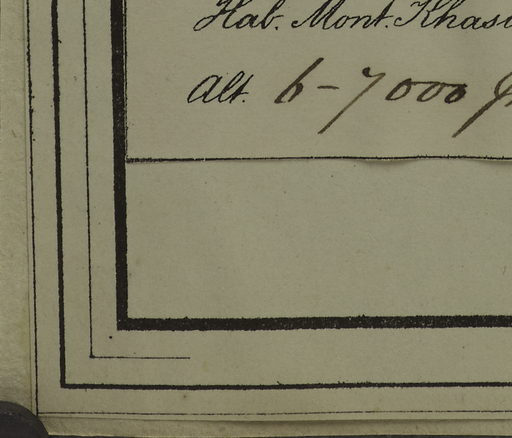 Hab. Mont. Khasi
Alt. 6-7000